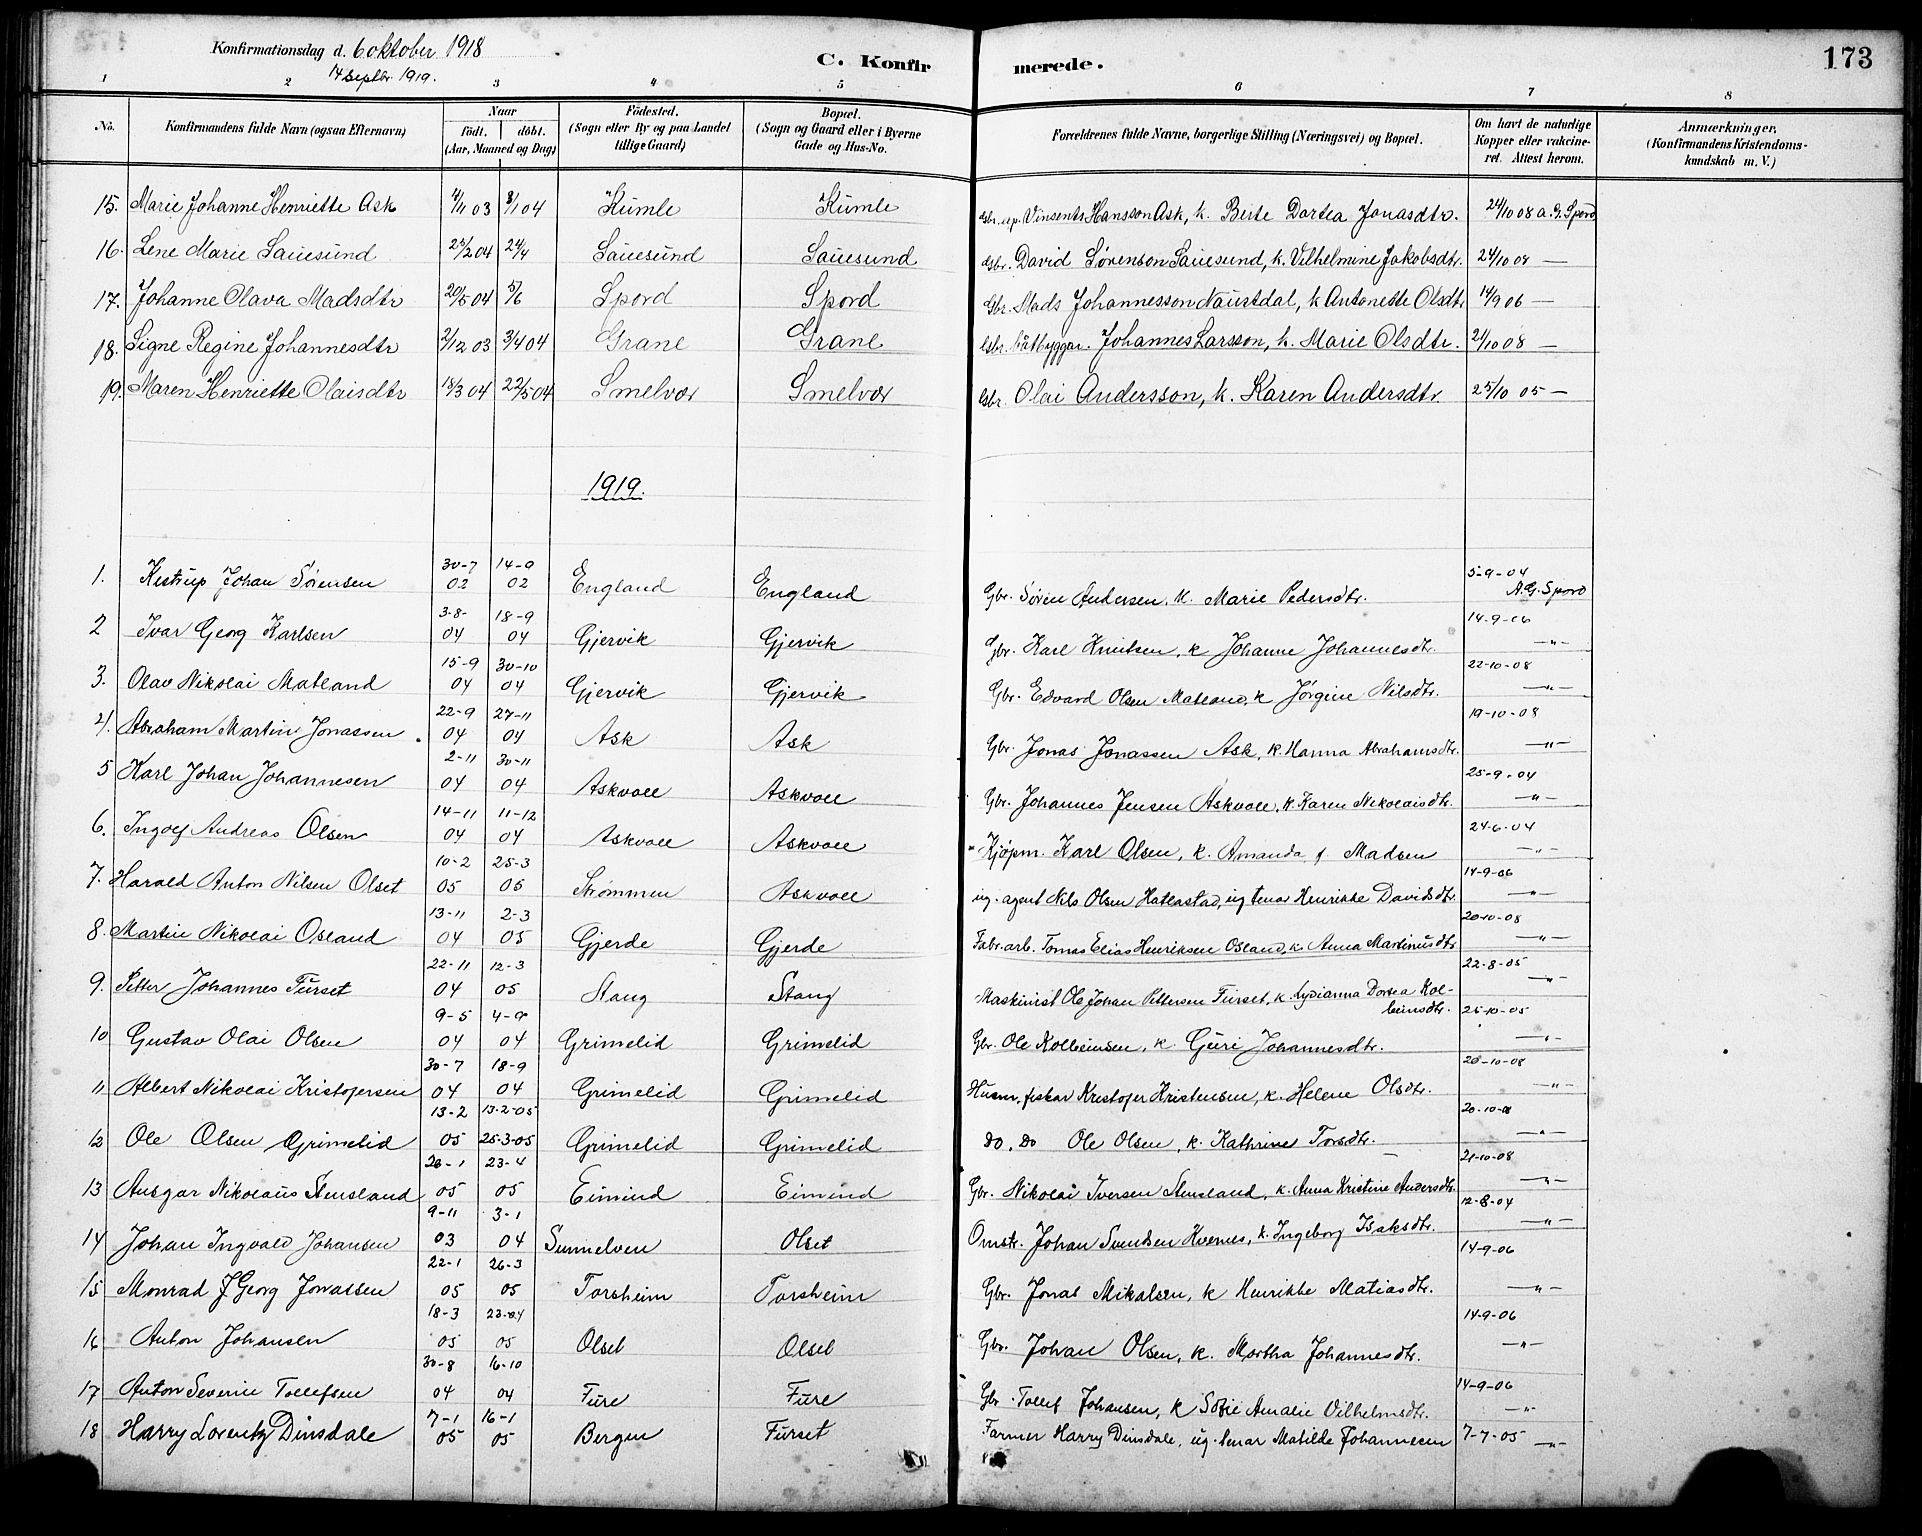 Konfirmationsdag d. 6 oktober 1918
14 septbr. 1919.
C. Konfir merede.
173
1 2 3 4 5 6 7 8
No.
Konfirmandens fulde Navn (ogsaa Efternavn)
Naar
födt. döbt.
(Aar, Maaned og Dag)
Födested.
(Sogn eller By og paa Landet
tillige Gaard)
Bopæl.
(Sogn og Gaard eller i Byerne
Gade og Hus-No.
Forældrenes fulde Navne, borgerlige Stilling (Næringsvei) og Bopæl.
Om havt de naturlige
Kopper eller vakcine-
ret. Attest herom.
Anmærkninger,
(Konfirmandens Kristendoms-
kundskab m. V.)
15. Marie Johanne Henriette Ask 4/11 03 3/1 04 Kumle Kumle Gbr. Vinsents Hansson Ask, k. Beite Dortea Jonasdtr. 24/10 08 A. G. Spord
16. Lene Marie Sauesund 23/2 04 24/4 Sauesund Sauesund Gbr. David Sørenson Sauesund, k. Vilhelmine Jakobsdtr. 24/10 08 —
17. Johanne Olava Madsdtr 20/5 04 5/6 Spord Spord Gbr. Mads Johannesson Naustdal, k Antonette Olsdtr 14/9 06 —
18. Signe Regine Johannesdtr 2/12 03 3/4 04 Grane Grane Gbr. båtbyggar. Johannes Larsson, k. Marie Olsdtr. 21/10 08 —
19. Maren Henriette Olaisdtr 18/3 04 22/5 04 Smelvær Smelvær Gbr. Olai Andersson, k. Karen Andersdtr. 25/10 05 —
1919.
1. Kistrup Johan Sørensen 30-7 02 14-9 02 England England Gbr. Søren Andersen, k. Marie Pedersdtr. 5-9-04 A. G. Spord
2 Ivar Georg Karlsen 3-8- 04 18-9 04 Gjervik Gjervik Gbr. Karl Knutsen, k Johanne Johannesdtr. 14-9-06 —"—
3. Olav Nikolai Matland 15-9 04 30-10 04 Gjervik Gjervik Gbr. Edvard Olsen Matland, k Jørgine Nilsdtr. 22-10-08 —"—
4. Abraham Martin Jonassen 22-9 04 27-11 04 Ask Ask Gbr. Jonas Jonassen Ask, k. Hanna Abrahamsdtr. 19-10-08 —"—
5 Karl Johan Johannesen 2-11 04 30-11 04 Askvoll Askvoll Gbr. Johannes Jensen Askvoll, k. Karen Nikolaisdtr. 25-9-04 —"—
6. Ingolf Andreas Olsen 14-11 04 11-12 04 Askvoll Askvoll Kjøpm. Karl Olsen, k. Amanda f Madsen 24-6-04 —"—
7. Harald Anton Nilsen Olset 10-2 05 25-3 05 Strømmen Askvoll ug. agent Nils Olsen Hatlastad, ug tenar Henrikke Davidsdtr. 14-9-06 —"—
8. Martin Nikolai Osland 13-11 04 2-3 05 Gjerde Gjerde Fabr.arb. Tomas Elias Henriksen Osland, k Anna Martinusdtr 20-10-08 —"—
9. Petter Johannes Furset 22-11 04 12-3 05 Stang Stang Maskinist Ole Johan Pettersen Furset, k. Lydianna Dortea Kol-
beinsdtr. 22-8-05 —"—
10 Gustav Olai Olsen 9-5 04 4-9 04 Grimelid Grimelid Gbr. Ole Kolbeinsen, k. Guri Johannesdtr. 25-10-05 —"—
11 Albert Nikolai Kristofersen 30-7 04 18-9 04 Grimelid Grimelid Husm. fiskar Kristofer Kristensen, k. Helene Olsdtr. 20-10-08 —"—
12 Ole Olsen Grimelid 13-2 05 13-2-05 25-3-05 Grimelid Grimelid do. do Ole Olsen, k. Kathrine Torsdtr. 20-10-08 —"—
13 Ansgar Nikolaus Stensland 26-1 05 23-4 05 Eimind Eimind Gbr. Nikolai Iversen Stensland, k. Anna Kristine Andersdtr. 21-10-08 —"—
14 Johan Ingvald Johansen 9-11 03 3-1 04 Sunnelven Olset Omstr. Johan Svendsen Hvernes, k. Ingeborg Isaksdtr. 12-8-04 —"—
15 Monrad J Georg Jonassen 22-1 05 26-3 05 Torsheim Torsheim Gbr. Jonas Mikalsen, k Henrikke Matiasdtr. 14-9-06 —"—
16 Anton Johansen 18-3 05 23-04 05 Olset Olset Gbr. Johan Olsen, k. Martha Johannesdtr. 14-9-06 —"—
17 Anton Severin Tollefsen 30-8 04 16-10 04 Fure Fure Gbr. Tollef Johansen, k Sofie Amalie Vilhelmsdtr. 14-9-06 —"—
18 Harry Lorentz Dinsdale 7-1 05 16-1 05 Bergen Furset Farmer Harry Dinsdale, ug. tenar Matilde Johannesen 7-7-05 —"—